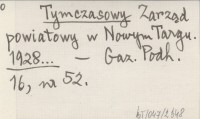 Tymczasowy Zarząd
powiatowy w Nowym Targu.
1928... — Gaz. Podh.
16, nr 52.